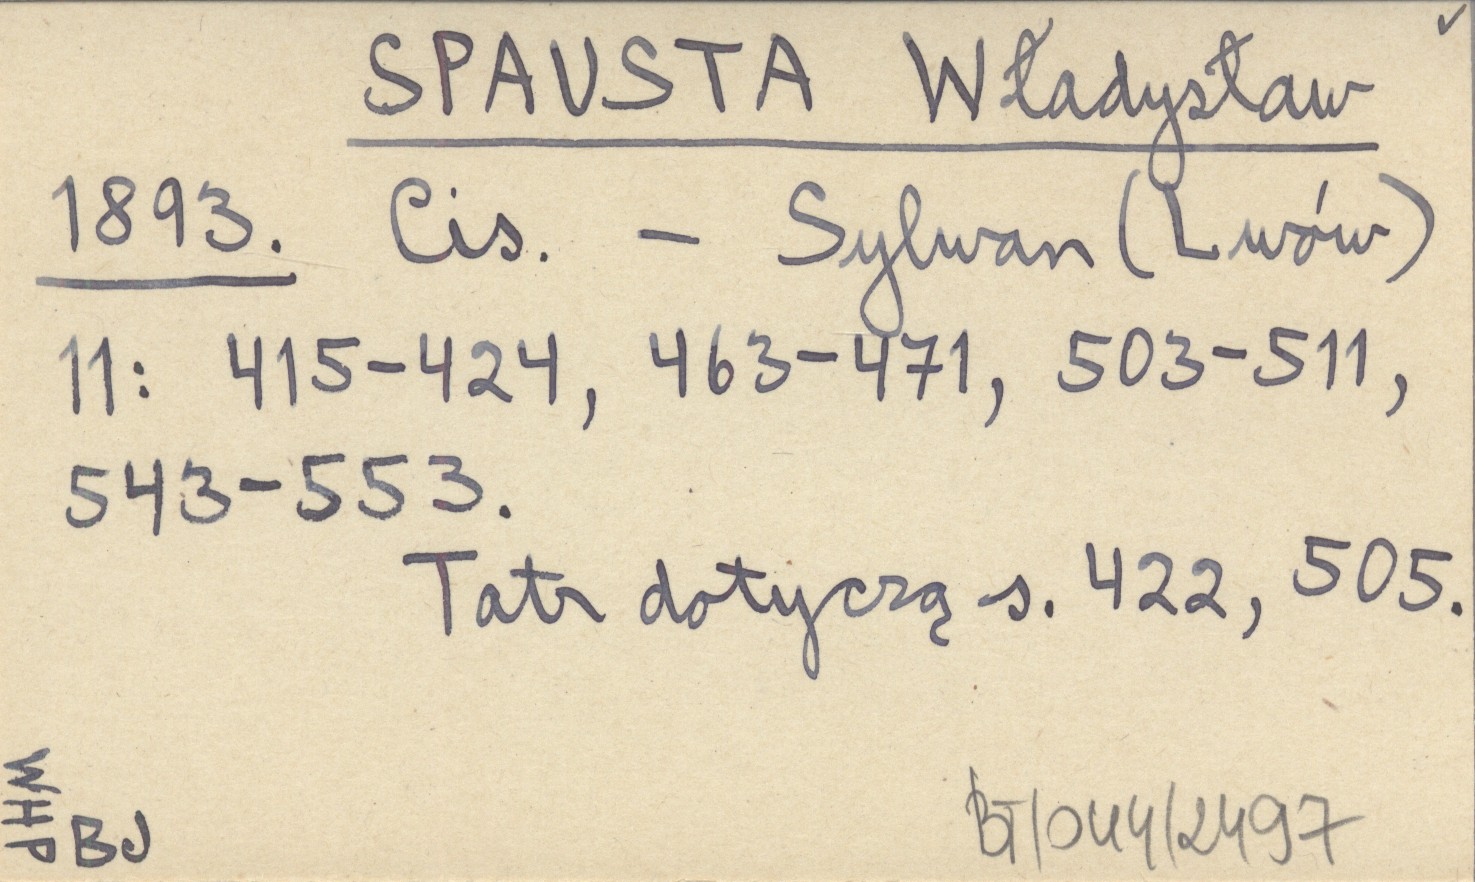 SPAUSTA Władysław
1893. Cis. - Sylwan (Lwów)
11: 415-424, 463-471, 503-511,
543-553.
Tatr dotyczą s. 422, 505.
WHP
BJ
BT/044/2497